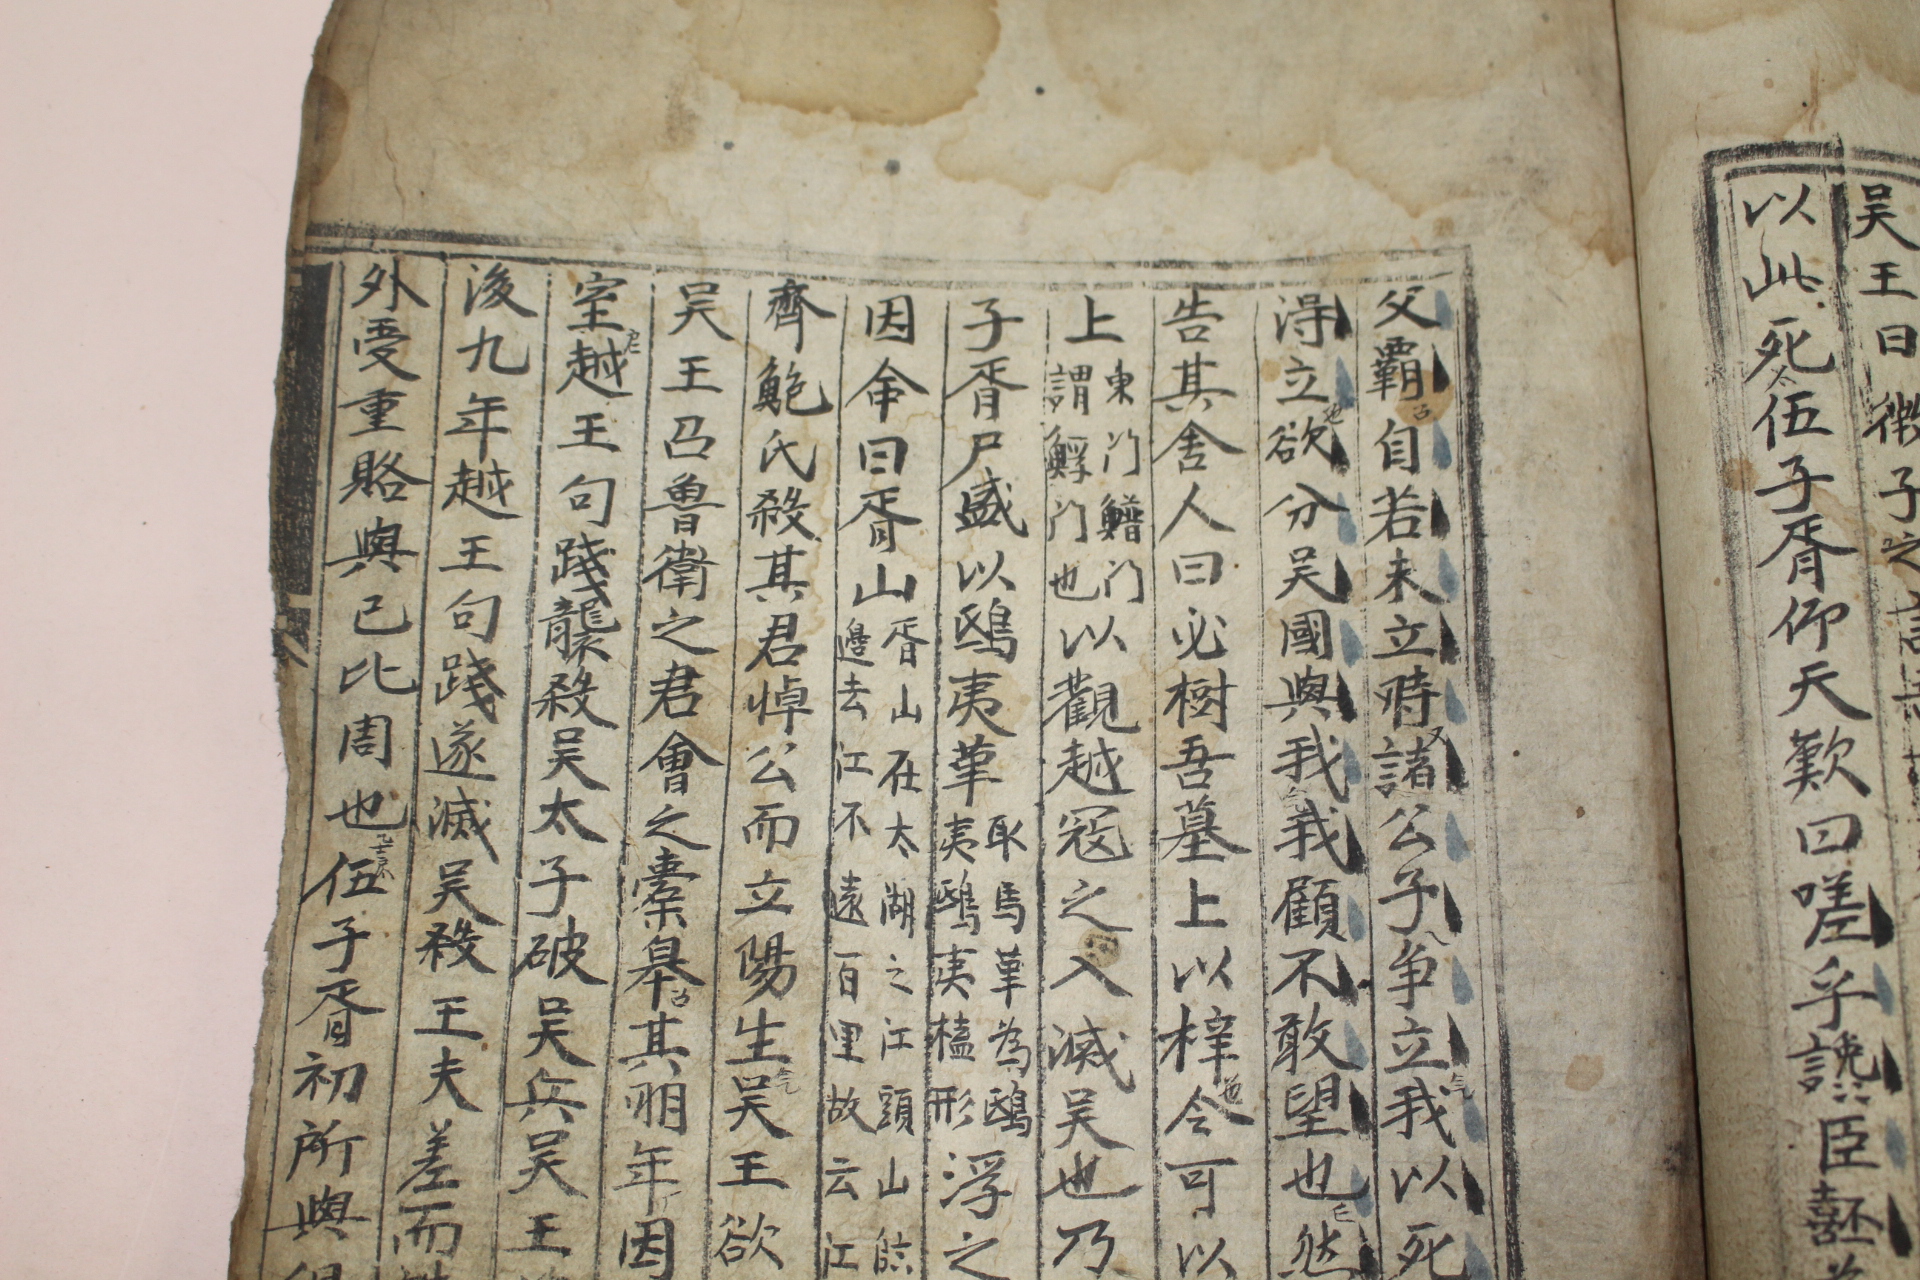 吴王曰微子之
以此死伍子胥仰天歎曰嗟乎讒臣嚭
父霸自若未立時諸公子争立我以死
淂立欲分吴國與我我顧不敢望也然
告其舍人曰必樹吾墓上以梓令可以
上
東門鱛門
謂鮃門也
以觀越冦之入滅吴也乃
子胥尸盛以鴟夷革
取馬革為鴟
夷鴟夷榼形
浮之
因命曰胥山
胥山在太湖之江頭山
邉去江不遠百里故云江
齊鮑氏殺其君悼公而立陽生吴王欲
吴王召魯衛之君會之槖皋其明年因
室越王句踐襲殺吴太子破吴兵吴王
後九年越王句踐遂滅吴殺王夫差而
外受重賂與己比周也伍子胥初所與